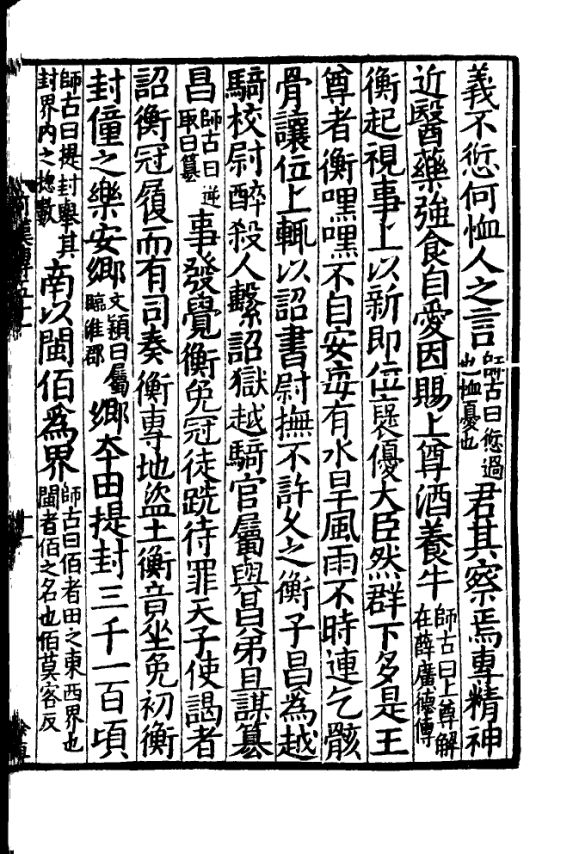 義不愆何恤人之言師古曰愆過也恤憂也君其察焉專精神
近醫藥強食自愛因賜上尊酒養牛師古曰上尊解在薛廣德傳
衡起視事上以新即位襃優大臣然群下多是王
尊者衡嘿嘿不自安每有水旱風雨不時連乞骸
骨讓位上輒以詔書尉撫不許久之衡子昌為越
騎校尉醉殺人繫詔獄越騎官屬與昌弟且謀篡
昌師古曰逆取曰篡事發覺衡免冠徒跣待罪天子使謁者
詔衡冠履而有司奏衡專地盜土衡竟坐免初衡
封僮之樂安鄉文穎曰屬臨淮郡鄉夲田提封三千一百頃
師古曰提封舉其封界內之揔數南以閩佰爲界師古曰佰者田之東西界也閩者佰之名也佰莫客反